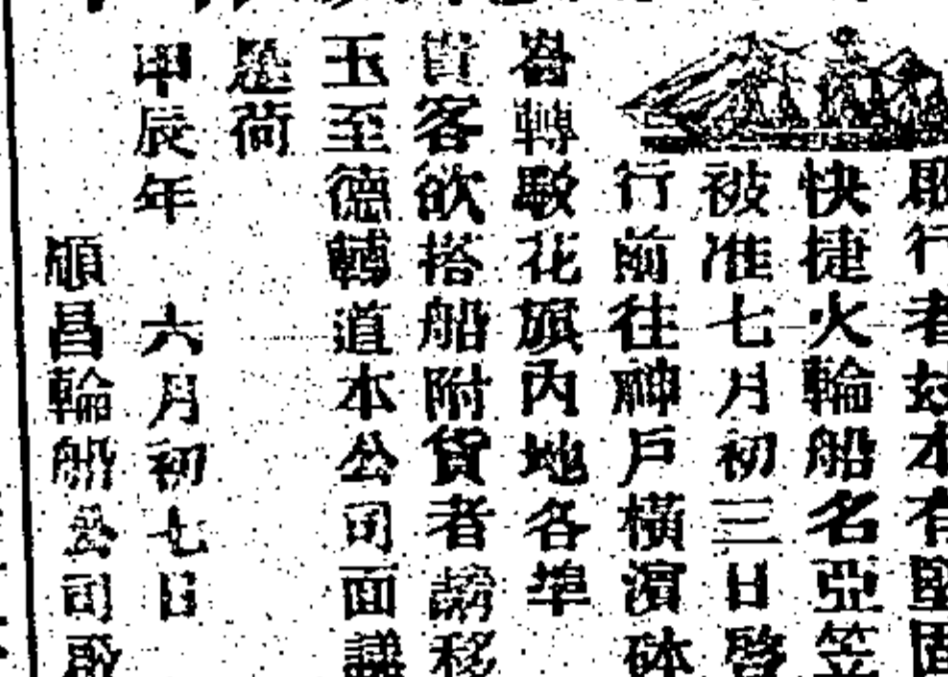 啟行者玆本有堅固
快捷火輪船名亞笠
被准七月初三日啓
行前往神戶橫濵砵
崙轉駁花旗內地各埠
貴客欲搭船附貨者請移
玉至德轉道本公司面議
是荷
甲辰年 六月初七日
順昌輪船公司啟